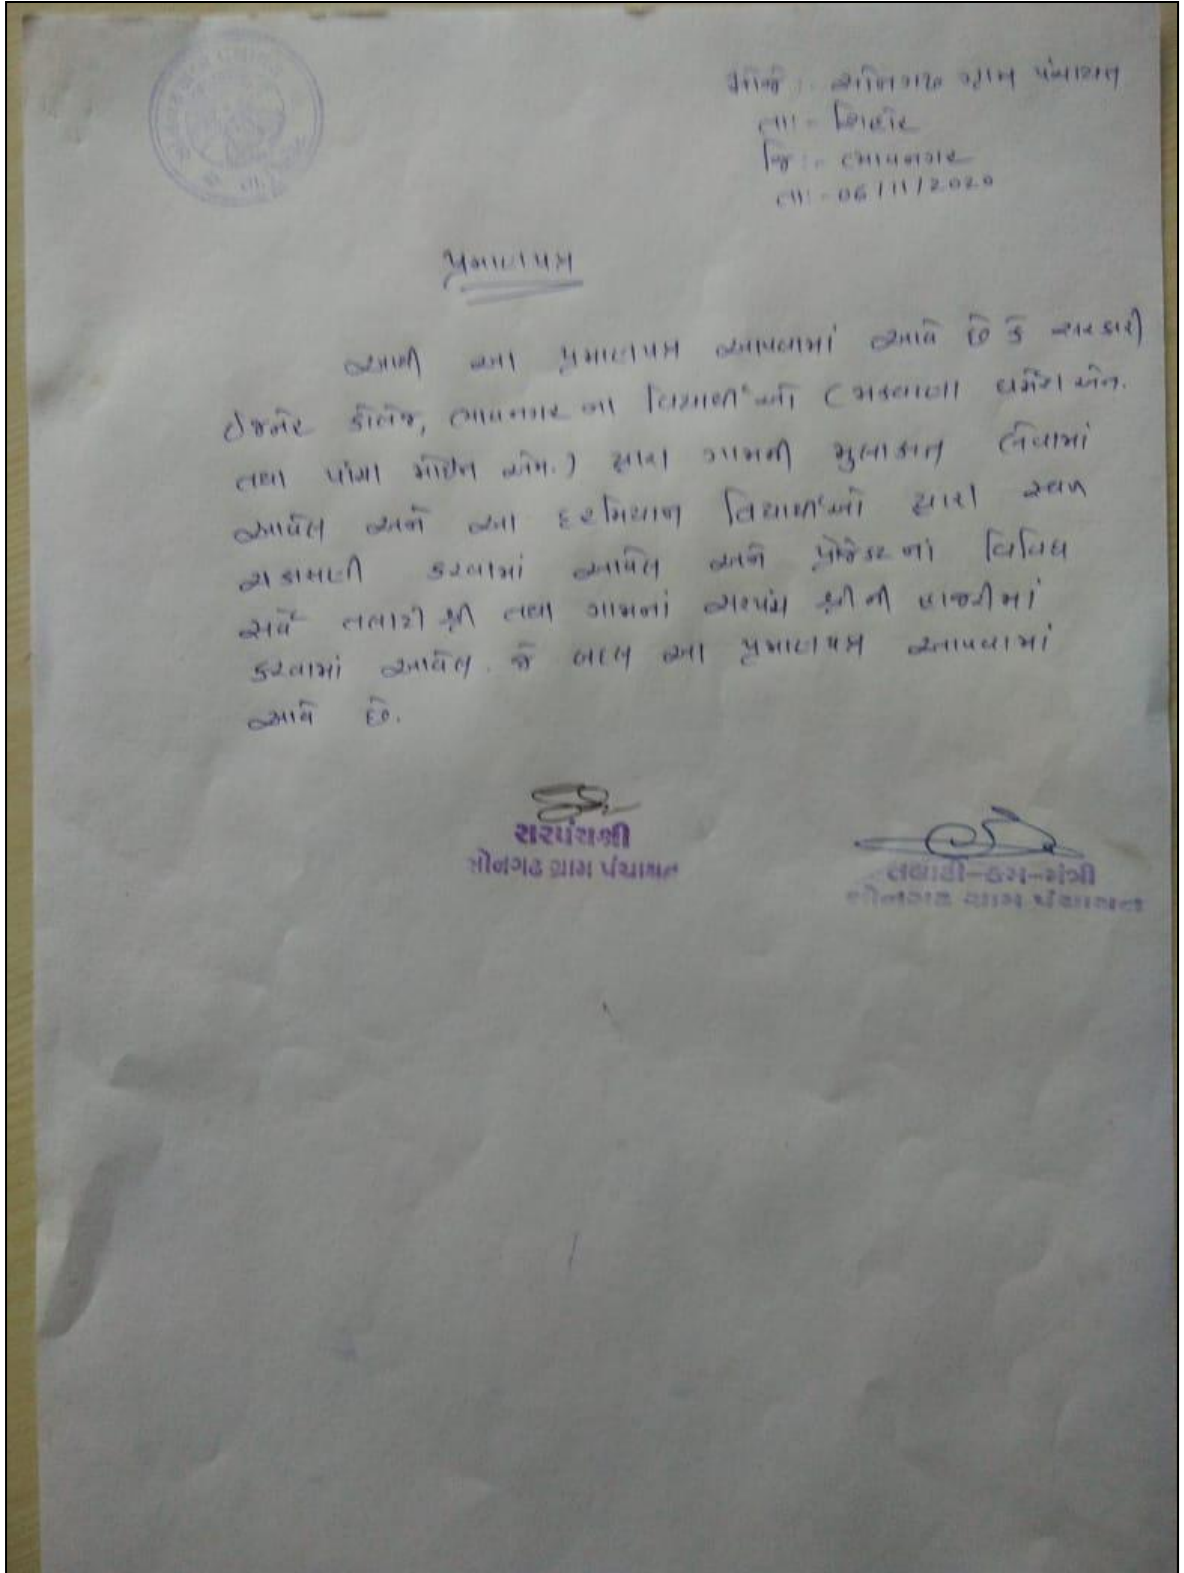 મોજે :- સોનગઢ ગ્રામ પંચાયત
તા :- સિહોર
જિ :- ભાવનગર
તા :- 06/11/2020
પ્રમાણપત્ર
આથી આ પ્રમાણપત્ર આપવામાં આવે છે કે સરકારી
ઈજનેર કોલેજ, ભાવનગર ના વિદ્યાર્થીઓ (મકવાણા ધર્મેશ એન.
તથા મોહિન એમ.) દ્વારા ગામની મુલાકાત લેવામાં
આવેલ અને આ દરમિયાન વિદ્યાર્થીઓ દ્વારા સ્થળ
ચકાસણી કરવામાં આવેલ અને પ્રોજેક્ટ નાં વિવિધ
સર્વે તલાટી શ્રી તથા ગામનાં સરપંચ શ્રી ની હાજરીમાં
કરવામાં આવેલ. જે બદલ આ પ્રમાણપત્ર આપવામાં
આવે છે.
સરપંચશ્રી
સોનગઢ ગ્રામ પંચાયત
તલાટી-કમ-મંત્રી
સોનગઢ ગ્રામ પંચાયત